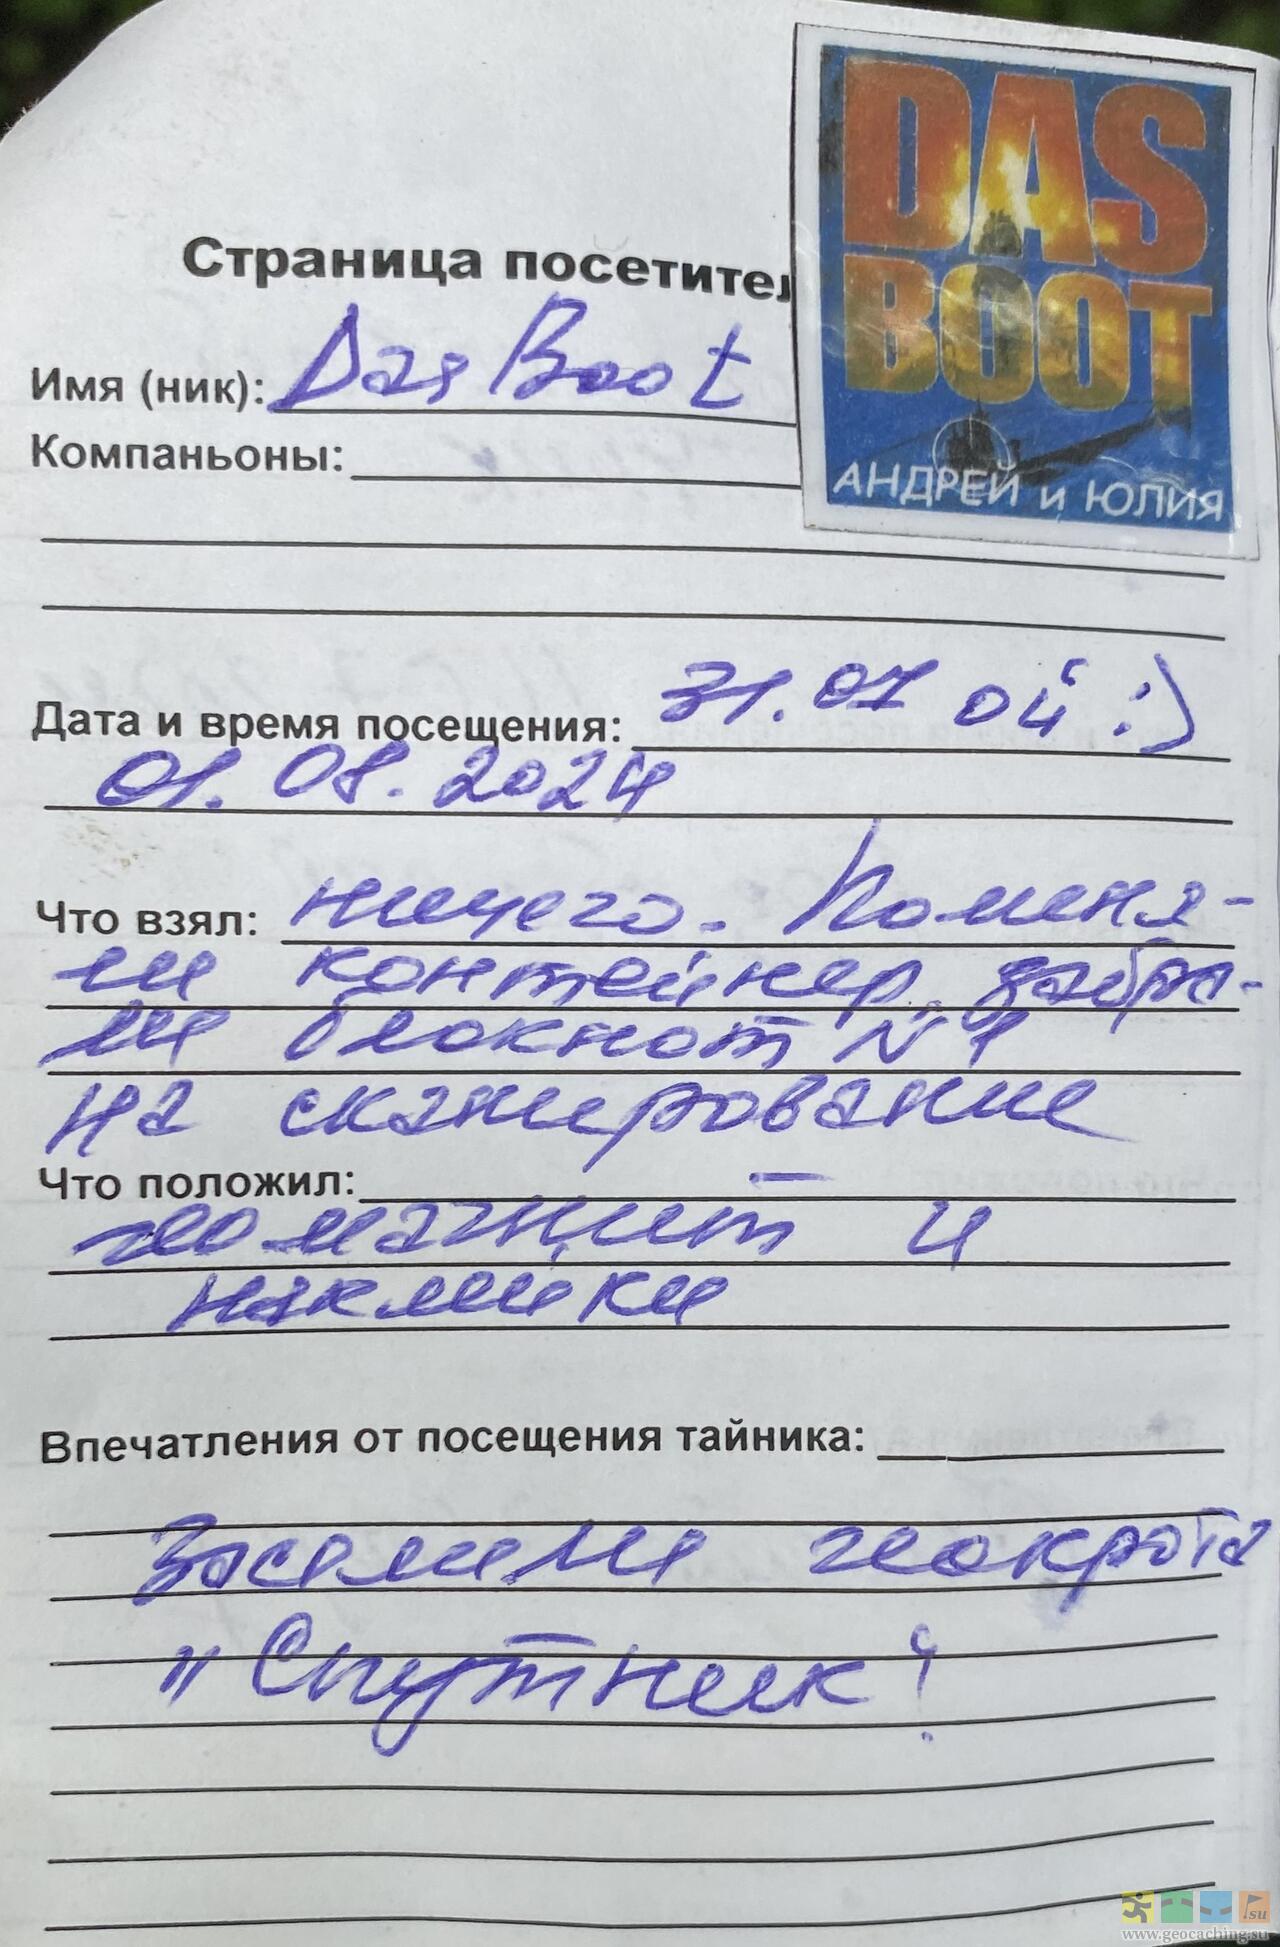 DAS
BOOT
АНДРЕЙ и ЮЛИЯ
Страница посетител
Имя (ник): Das Boot
Компаньоны:
Дата и время посещения: 31.07 ой :)
01.08.2024
Что взял: ничего. Поменя-
ли контейнер, забра-
ли блокнот №1
на сканирование
Что положил:
геомагнит и
наклейки
Впечатления от посещения тайника:
Заселили геокрота
"Спутник"!
su
www.geocaching.su